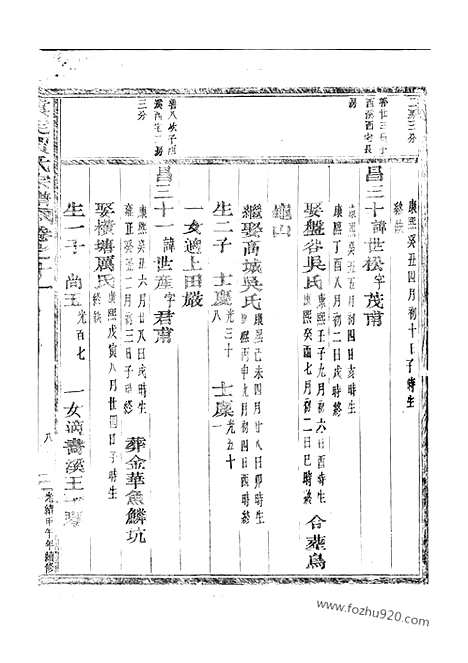 康熙癸丑四月初十日子時生
終缺
昌三十諱世松字茂甫
康熙癸丑五月初四日亥時生
康熙丁酉八月初二日戌時終
娶盤谷吳氏
康熙壬子九月初六日酉時生
康熙癸酉七月初二日巳時終
合葬烏龜山
繼娶高城吳氏
康熙己未四月廿八日卯時生
丙申九月初四日酉時終
生二子
士慶
光三十八
士廉
光五十一
一女適上田嚴
昌三十一諱世產字君甫
康熙癸丑六月廿八日戌時生
雍正癸丑二月初三日子時終
葬金華魚鱗坑
娶橫塘厲氏
康熙戊寅八月廿四日子時生
終缺
生一子
尚玉
光百七
一女適壽溪王
三分
八
光緒甲午年續修
www.fozhu920.com